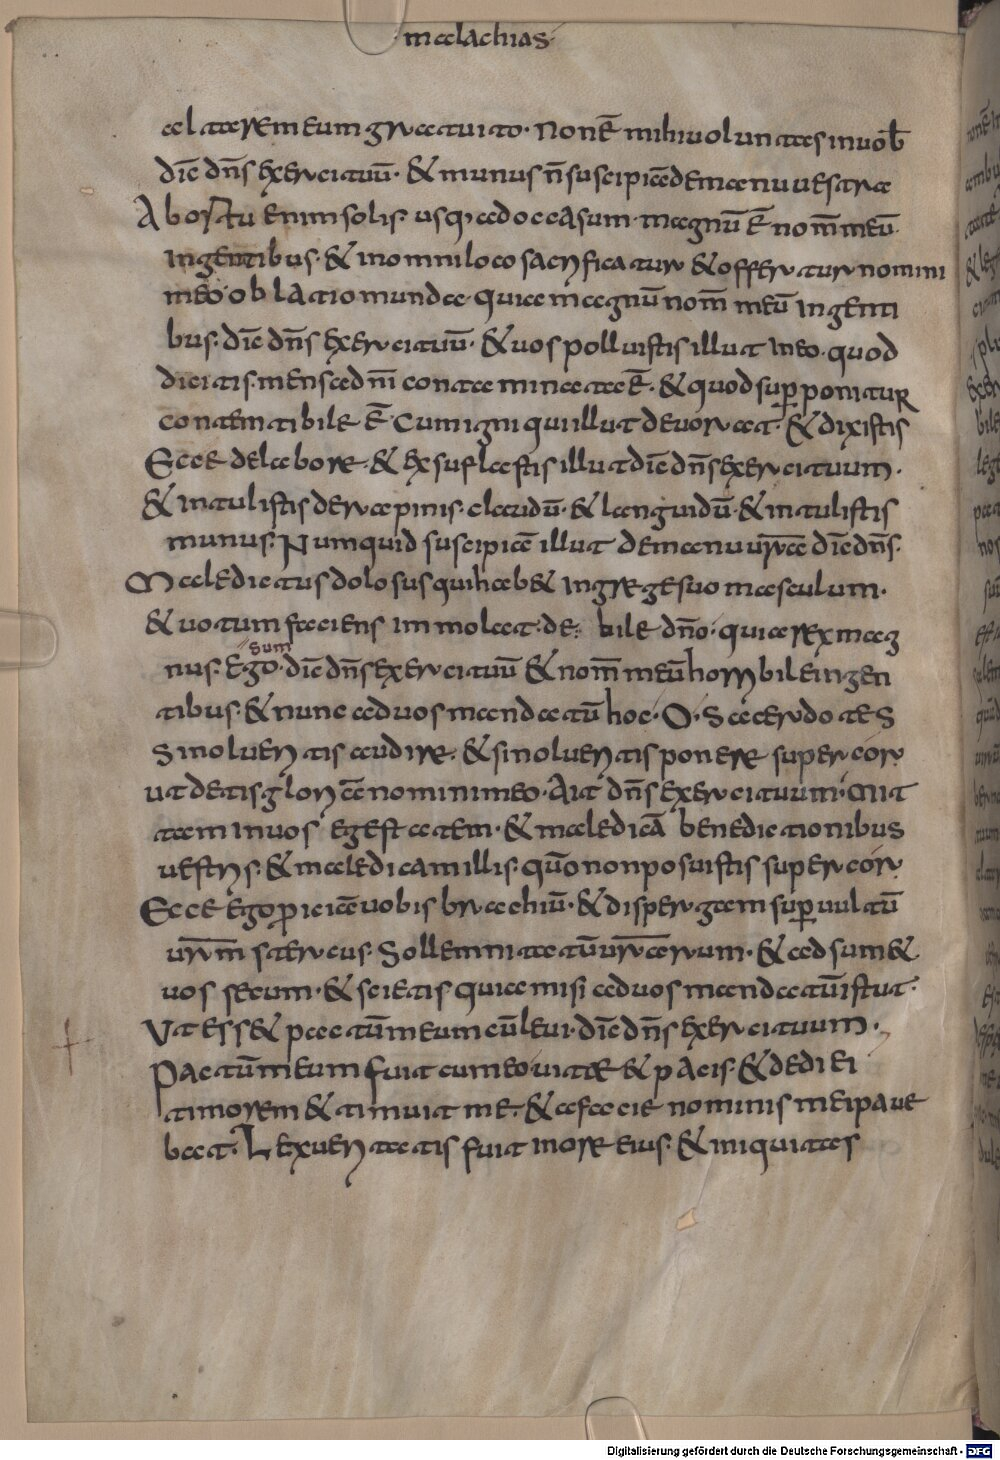 ·malachias·
altarem eum gratuito· Non ē mihi voluntas in uob̄
diē dn̄s exercituū· & munus n̄ suscipiā de manu uestra
Ab ortu enim solis· usq; ad occasum· magnū ē nom̄ meū·
In gentibus· & in omni loco sacrificatur & offertur nomini
meo· oblatio munda· quia magnū nom̄ meū In genti
bus· diē dn̄s exercituū· & uos polluistis illut In eo· quod
dicitis· mensa dn̄i contaminata ē· & quod sup̄ponitur
contemtibile ē· Cum igni qui illut deuorat· & dixistis
Ecce de labore· & exsuflastis illut diē dn̄s exercituum·
& Intulistis de rapinis· claudū· & languidū· & intulistis
munus· Numquid suscipiā illut de manu ur̄a diē dn̄s·
Maledictus dolosus qui hab& In grege suo masculum·
& uotum faciens Immolat· de· bile dn̄o· quia rex mag
nus· Ego· sum diē dn̄s exercituū & nom̄ meū horribile in gen
tibus· & nunc ad uos mandatū hoc· O· Sacerdotes
Si nolueritis audire· & si nolueritis ponere super cor
ut detis· gloriā nomini meo· Ait dn̄s exercituum· Mit
tam In uos egestatem· & maledicā benedictionibus
uestris· & maledicam illis· quō non posuistis super cor
Ecce Ego p̄iciā uobis brachiū· & dispergam sup̄ uultū
ur̄m stercus· Sollemnitatū ur̄arum· & adsum&
uos secum· & scietis quia misi ad uos mandatū istut·
Ut ess& pactū meum cū leui· diē dn̄s exercituum·
Pactū meum fuit cum eo uitæ & pacis· & dedi ei
timorem & timuit me· & a facie nominis mei paue
bat· Lex ueritatis fuit in ore eius· & iniquitas
Digitalisierung gefördert durch die Deutsche Forschungsgemeinschaft - DFG